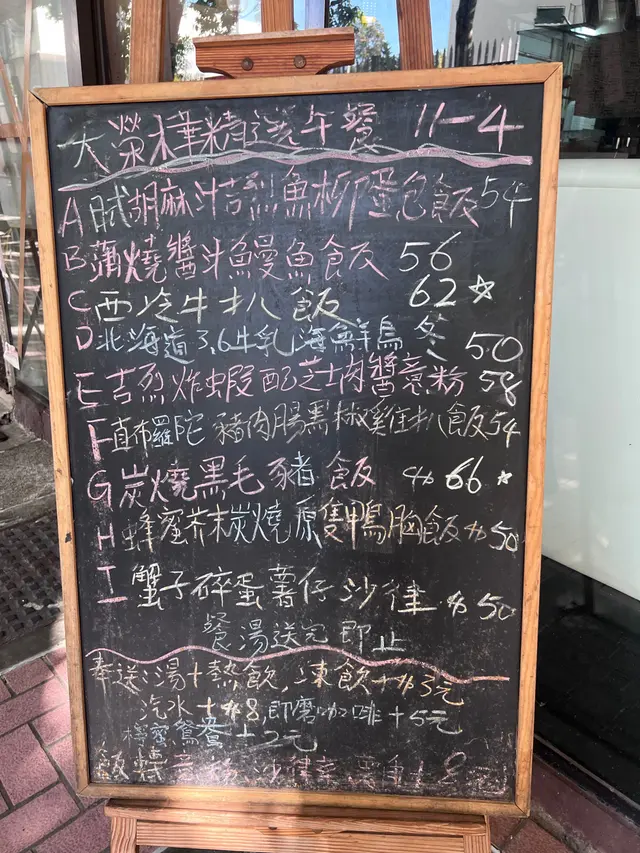 大榮樺精選午餐 11-4
A 日式胡麻汁吉烈魚柳蛋包飯 54
B 蒲燒醬汁鰻魚飯 56
C 西冷牛扒飯 62☆
D 北海道3.6牛乳海鮮烏冬 50
E 吉烈炸蝦配芝士肉醬意粉 58
F 直布羅陀豬肉腸黑椒雞住扒飯 54
G 炭燒黑毛豬飯 $66☆
H 蜂蜜芥末炭燒原隻鴨胸飯 $50
I 蟹子碎蛋薯仔沙律 $50
餐湯送完即止
奉送:湯+熱飲,凍飲+$3元
汽水+$8,即磨咖啡+5元
鴛鴦+2元
飯 意粉 沙律